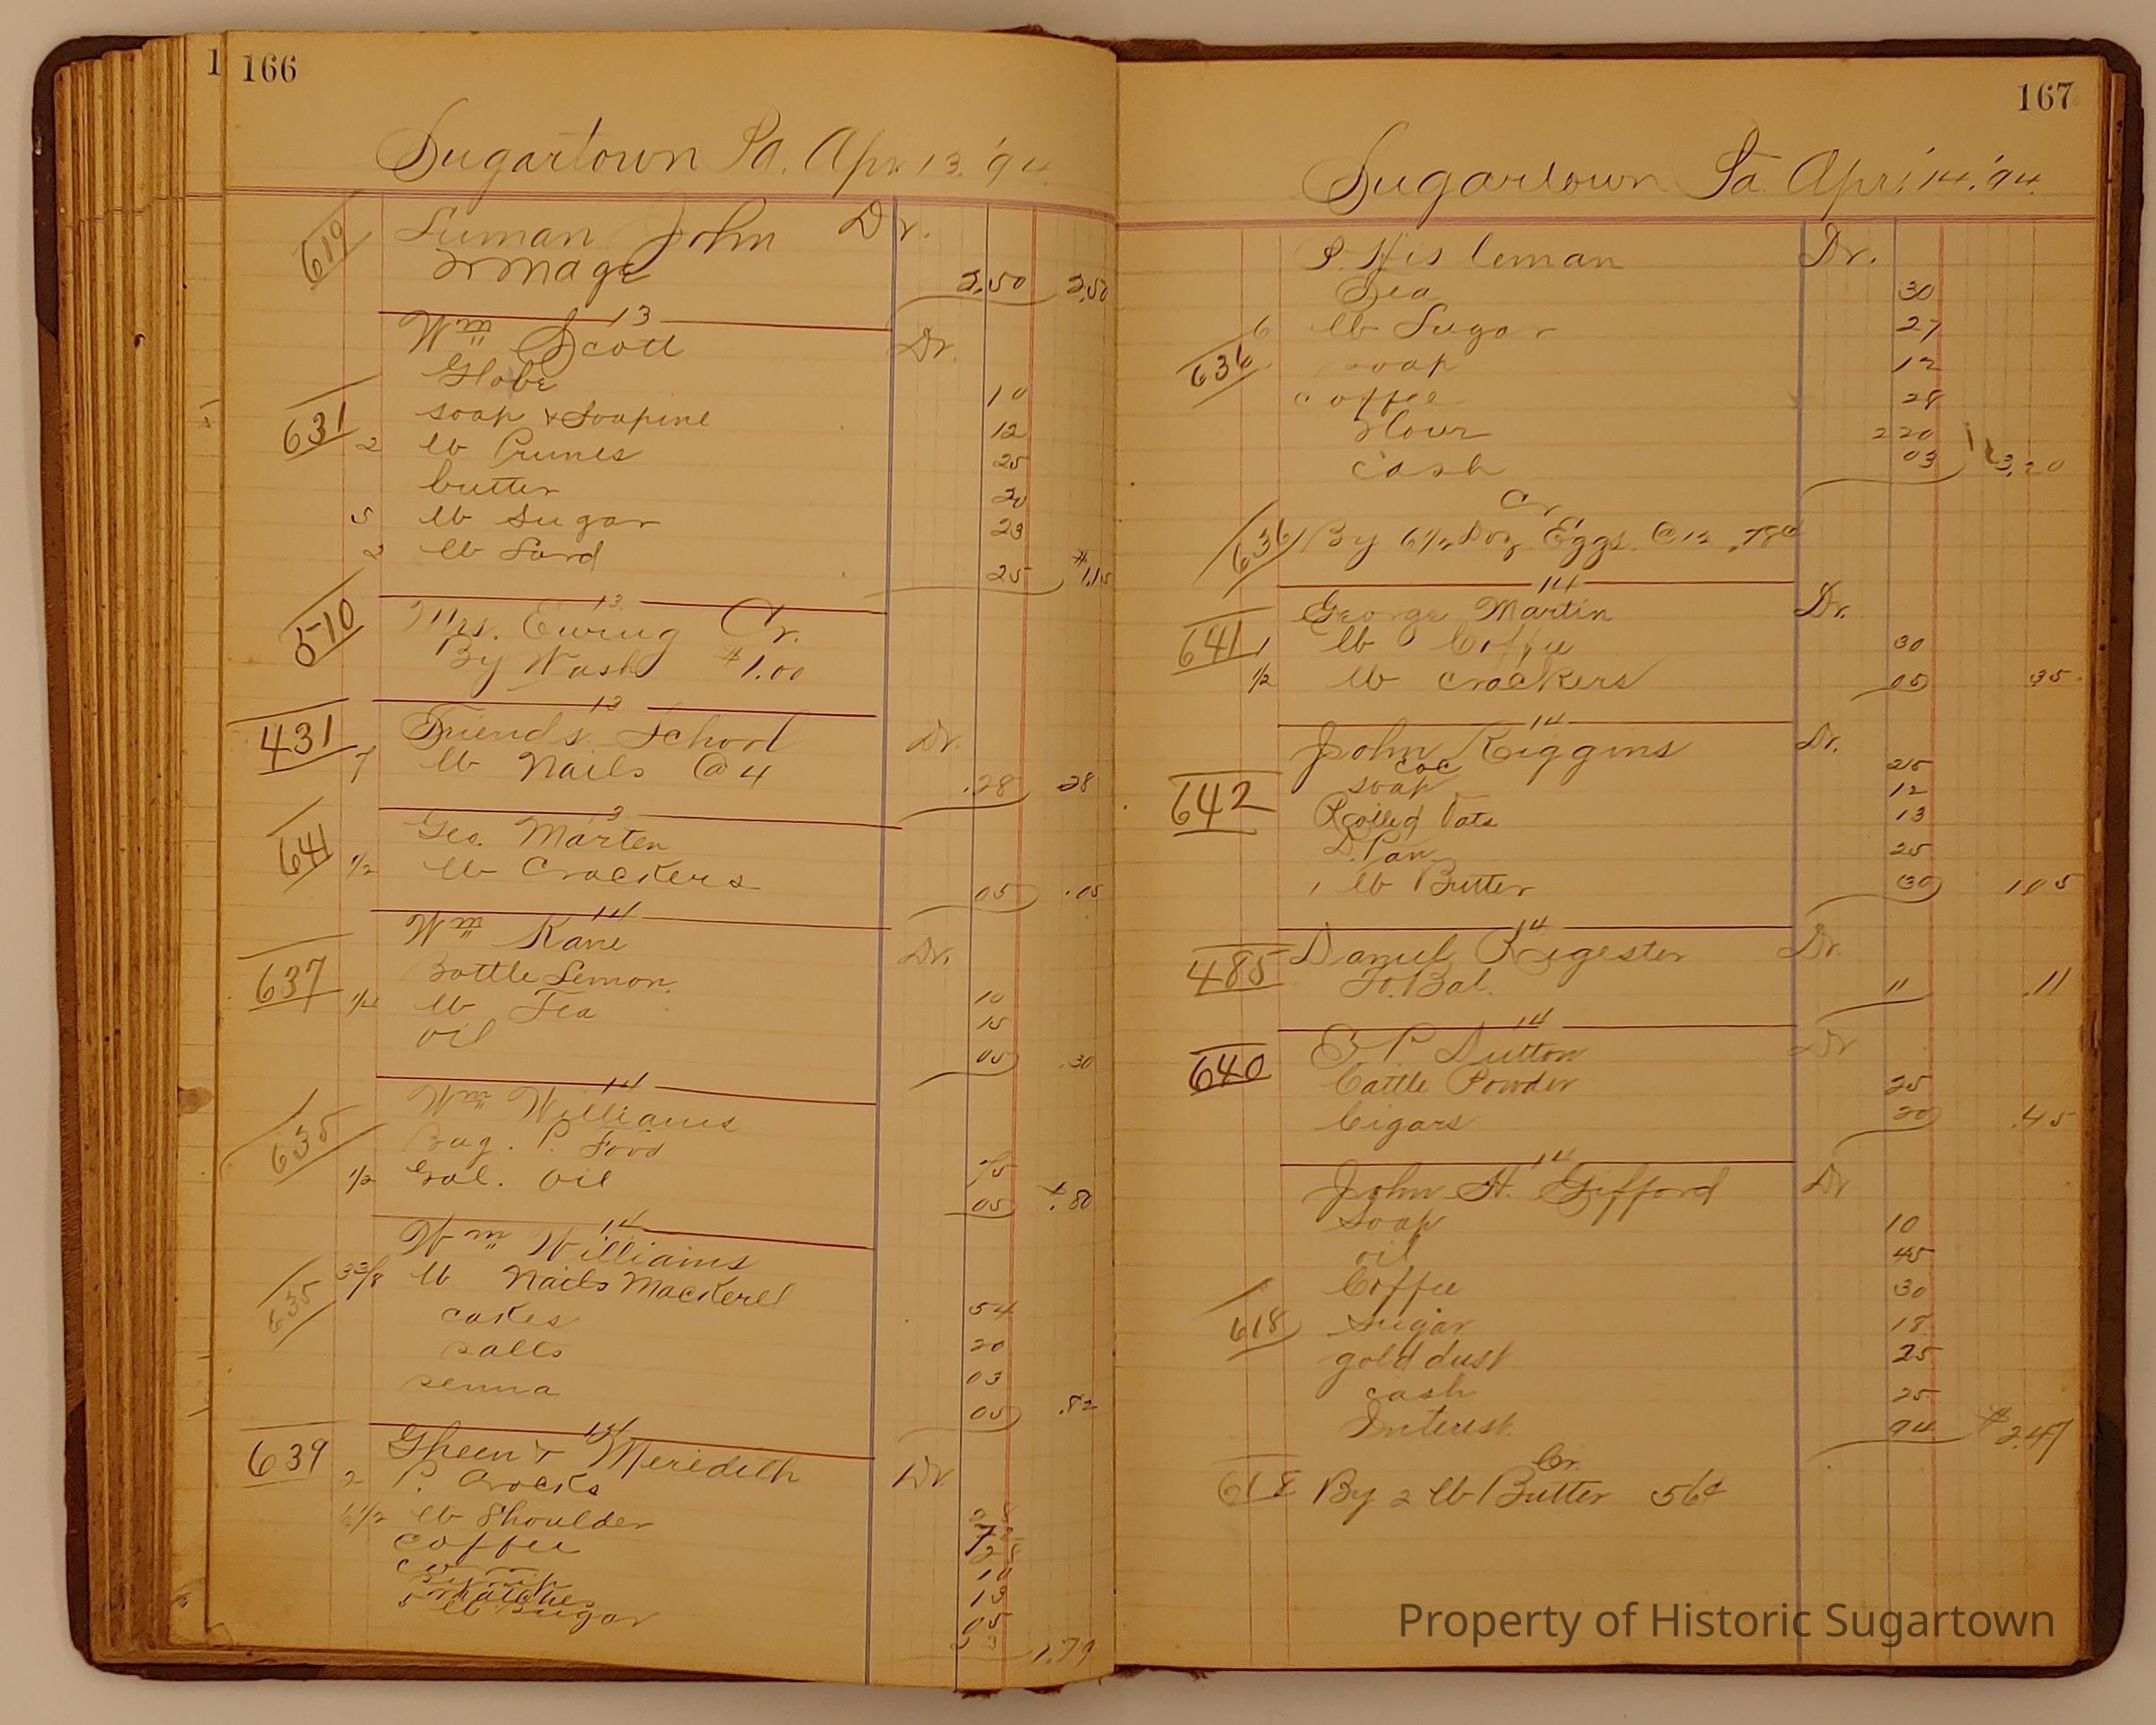 1 166
Sugartown Pa. Apr. 13. '94.
619 Suman John Dr.
2.50 2.50
13
Wm Scott Dr.
Globe 10
631 soap & Soapine 12
2 lb Prunes 25
butter 20
5 lb Sugar 23
2 lb Lard 25 $1.15
13
510 Mrs. Ewing Cr.
By Wash $1.00
13
431 Friends School Dr.
7 lb Nails @ 4 .28 28
13
641 Geo. Marten
1/2 lb Crackers 05 .05
14
Wm Kane Dr.
637 Bottle Lemon. 10
1/4 lb Tea 15
oil 05 .30
14
635 Wm Williams
Bag. P. Food 75
1/2 Gal. Oil 05 $.80
14
Wm Williams
635 3 3/8 lb Nails Mackerel 54
cakes 20
salts 03
senna 05 .82
14
639 Gheen & Meredith Dr.
2 P. Crocks
lb Shoulder
coffee
matches
5 lb Sugar 1.79
167
Sugartown Pa Apr. 14. '94.
Hisleman Dr.
Tea 30
6 lb Sugar 27
636 soap 12
coffee 28
Flour 2 20
cash 03 3.20
Cr.
636 By 6 1/2 Doz Eggs. @ 12 .78¢
14
George Martin Dr.
641 1 lb Coffee 30
1/2 lb crackers 05 35.
14
John Riggins Dr.
coc 25
642 soap 12
Rolled Oats 13
D. Pan 25
1 lb Butter 30 1 05
14
485 Daniel Rigester Dr.
To. Bal. 11 .11
14
640 P. Dutton Dr
Cattle Powder 25
Cigars 20 .45
14
John H. Gifford Dr
soap 10
oil 45
Coffee 30
618 Sugar 18
gold dust 25
cash 25
Interest. 94 $2.47
Cr.
618 By 2 lb Butter 56¢
Property of Historic Sugartown